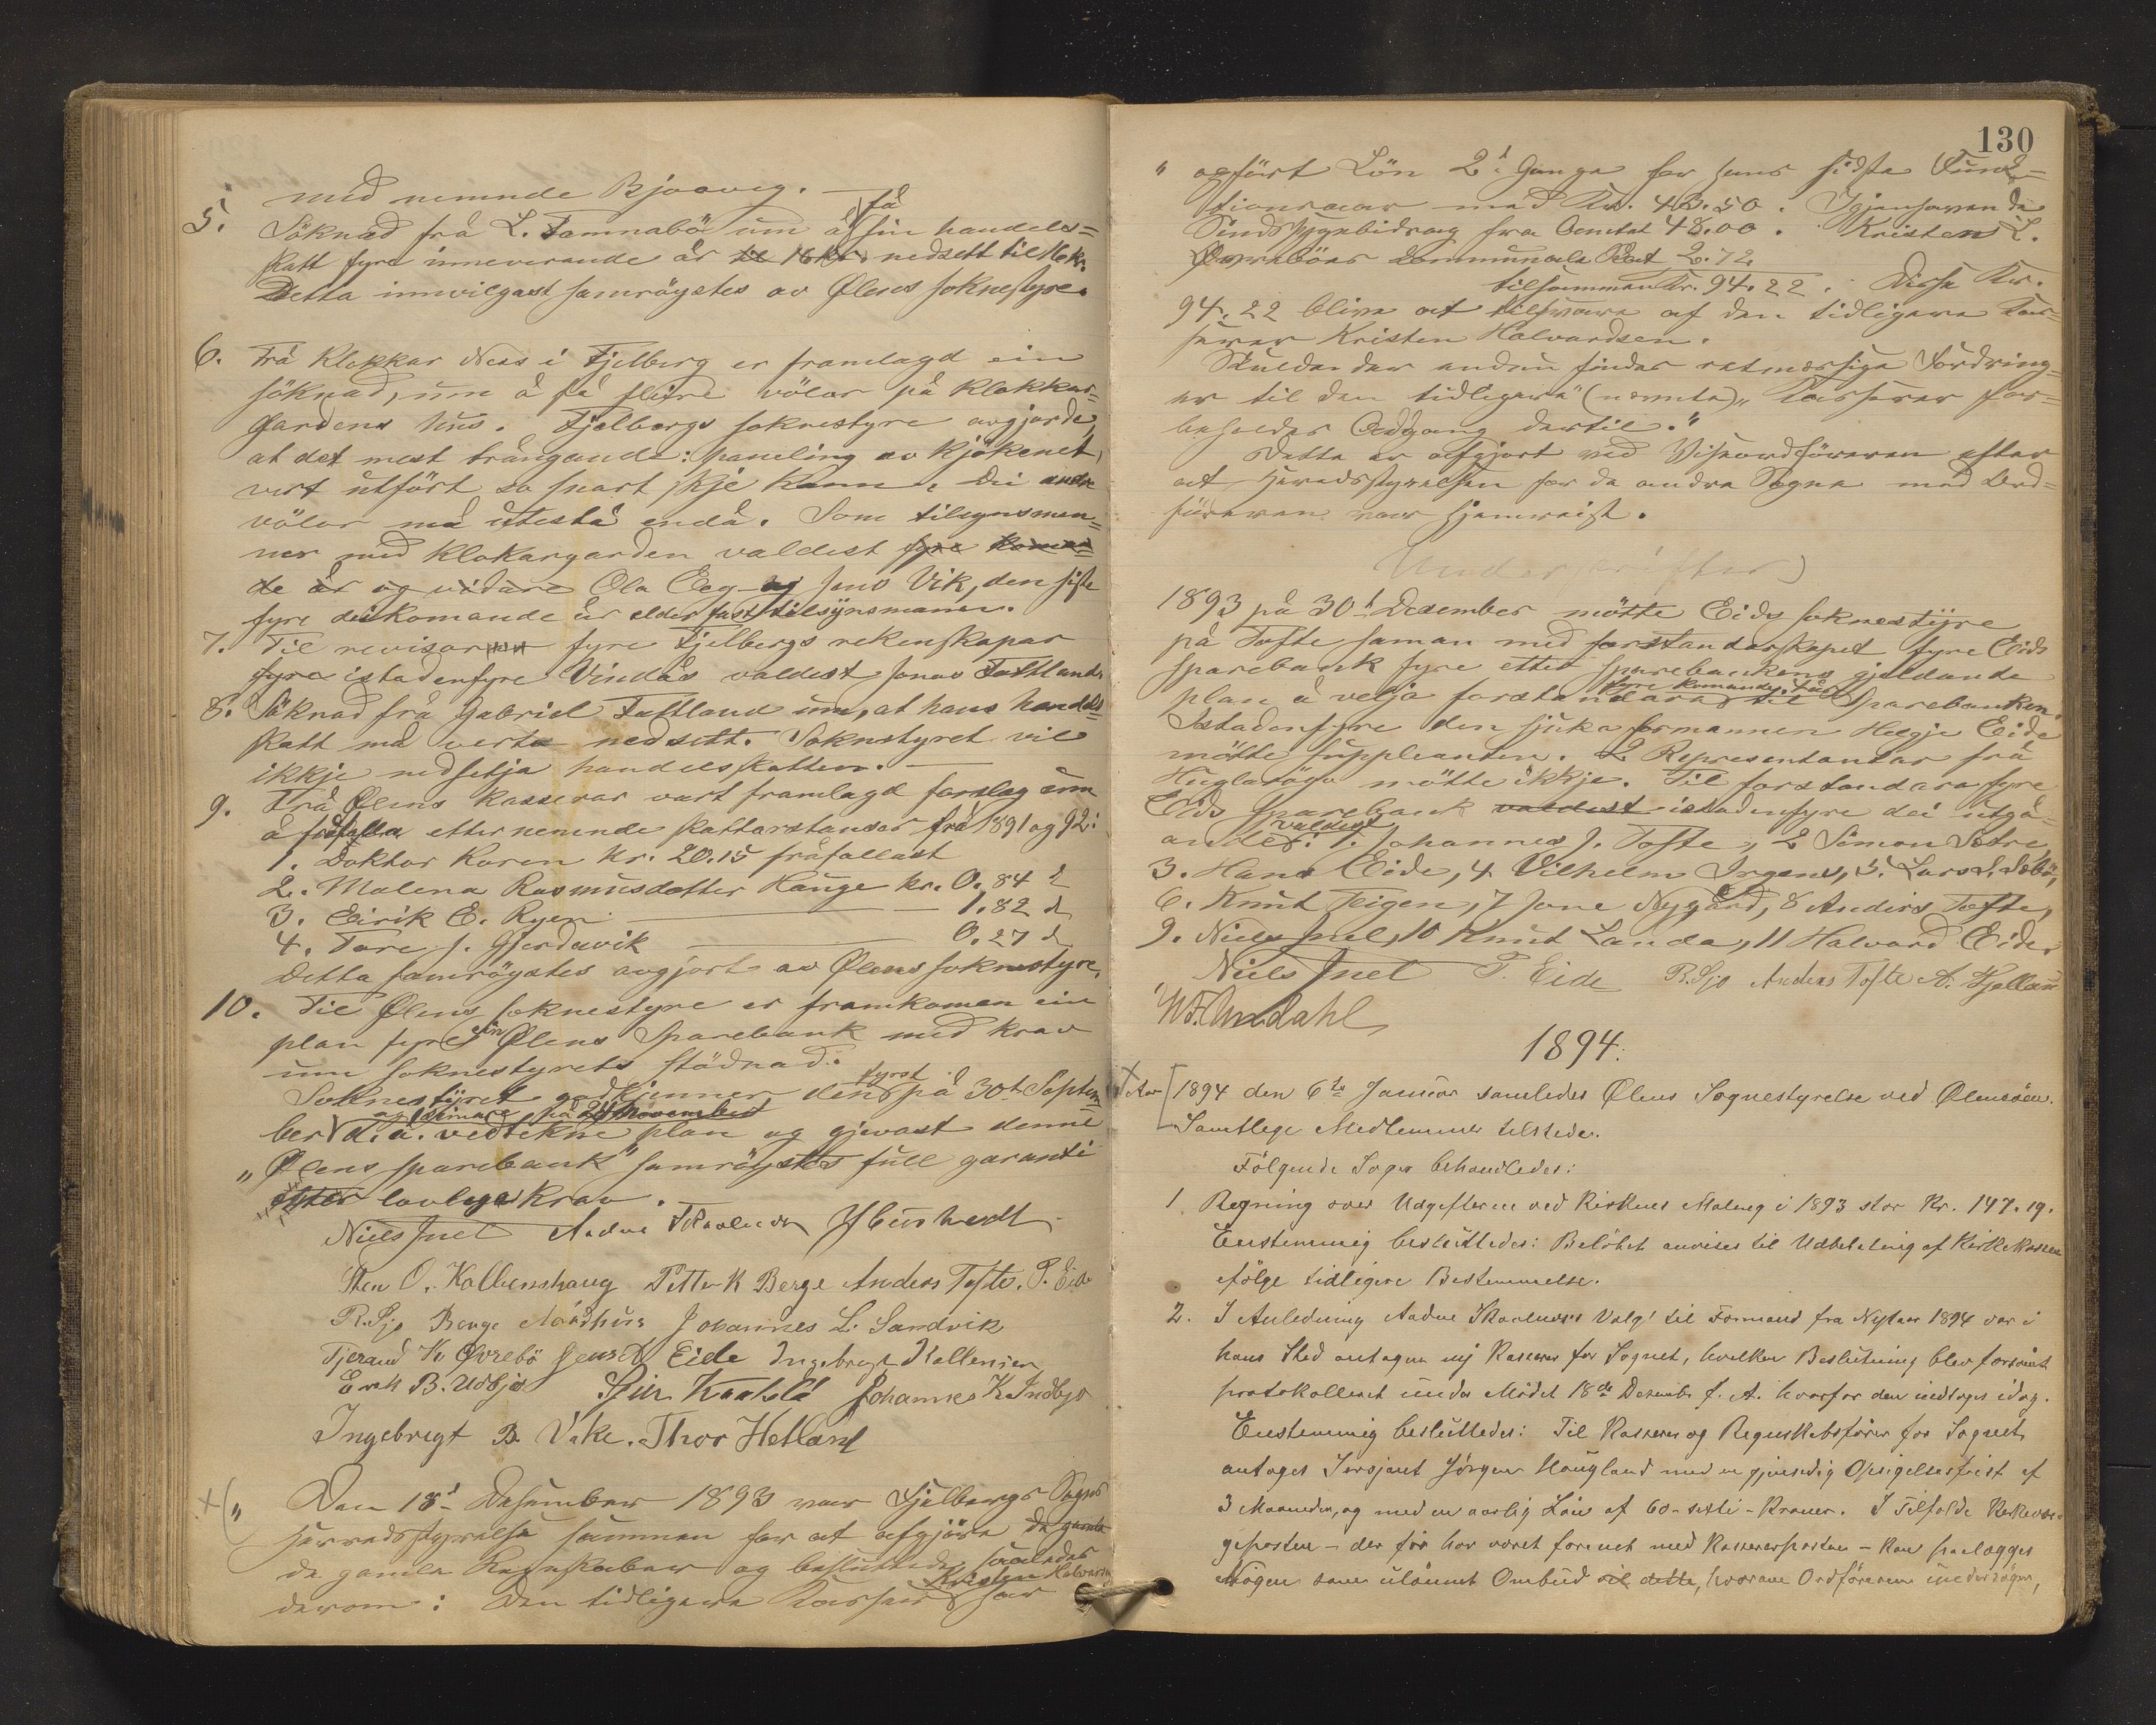 med nemnde Bjoaveg.
5. Söknad frå L. Tamnabö um å få sin handels=
skatt fyre inneverande år til 16 kr. nedsett til 16 kr.
Detta innvilgast samröystes av Ølens soknestyre.
6. Frå Klokkar Ness i Fjelberg er framlagd ein
söknad, um å få fleire völor på Klokkar-
gardens hus. Fjelbergs soknestyre avgjorde,
at det mest trångande: paneling av kjökenet,
vert utfört so snart skje kann. Dei andre
völor må utestå endå. Som tilsynsmen=
ner med Klokargarden valdest fyre koman=
de år og vidare Ola Eeg og Jens Vik, den siste
fyre dei komande år elder fast tilsynsmann.
7. Til revisor fyre Fjelbergs rekenskapar
fyre istadenfyre Vindås valdest Jonas Tastland.
8. Söknad frå Gabriel Tastland um, at hans handels=
skatt må verta nedsett. Soknstyret vil
ikkje nedsetja handelsskatten.
9. Frå Ølens kasserar vart framlagd forslag um
å fråfalla etter nemnde skattarstansar frå 1891 og 92:
1. Doktor Koren kr. 20.15 fråfallast
2. Malena Rasmusdotter Hauge kr. 0.84 d
3. Eirik E. Ryen 1.82 d
4. Tore J. Gjerdevik 0.27 d
Detta samröystes avgjort av Ølens soknestyre.
10. Til Ølens soknestyre er framkomen ein
plan fyre ein Ølens Sparebank med krav
um soknestyrets stödnad.
Soknestyret godkjenner den fyrst på 30te Septem=
ber og sidma på 28 November
d. å. vedtekne plan og gjevast denne
"Ølens sparebank" samröystes full garanti
etter lovlege krav.
Niels Juel Aadne Skaalnes
Sten O. Kolbenshaug Petter K Berge Anders Tofte. P. Eide
R. Sjo Berge Nordhus Johannes L. Sandvik
Tjerand K Øvrebö Jens A Eide Ingebregt Kallensen
Erik B. Udbjo Johannes K. Indbjo
Ingebregt B. Vike. Thor Hetland
X (" Den 18d Desember 1893 var Fjelbergs Sogns
Herredsstyrelse sammen for at afgjöre de gamle
de gamle Regnskaber og besluttede saaledes
derom: Den tidligere Kasserer Kristen Halvorsen har
130
" opfört Lön 2d Gange for hans sidste Funk=
tionsaar med Kr. 43.50. Igjenhavende
Sindssygebidrag fra Amtet 48.00. Kristen L.
Øvrebös kommunale Skat 2.72.
tilsammen Kr. 94.22. Disse Kr.
94.22 blive at tilsvare af den tidligere Kas=
serer Kristen Halvordsen.
Skulde der anden findes retmæssige Fordring=
er til den tidligere (nevnte) Kasserer for=
beholdes Adgang dertil."
Dette er afgjort ved Viseordföreren efter
at Heredsstyrelsen for de andre Sogne med Ord=
föreren var hjemreist.
Underskrifter)
1893 på 30d Desember mötte Eids soknestyre
på Tofte saman med forstandarskapet fyre Eids
sparebank fyre etter sparebankens gjeldande
plan å velja forstandarar fyre komande år til Sparebanken.
Istadenfyre den sjuke formannen Helgje Eide
mötte suppleanten. 2 Representantar frå
Huglaröyo mötte ikkje. Til forstandara fyre
Eids sparebank valdest istadenfyre dei utgå-
ande valdest: 1. Johannes J. Tofte, 2 Simon Sætre,
3. Hans Eide, 4 Vilhelm Irgens, 5. Lars L. Søbö,
6. Knut Teigen, 7 Jone Nygård, 8 Anders Tofte,
9. Niels Juel, 10 Knut Landa, 11 Halvard Eide.
Niels Juel P. Eide R. Sjo Anders Tofte A. Hjelland
1894.
Aar 1894 den 6te Januar samledes Ølens Sognestyrelse ved Ølensöen.
Samtlege Medlemmer tilstede.
Fölgende Sager behandledes:
1. Regning over Udgifterne ved Kirkens Maling i 1893 stor Kr. 147.19.
Enstemmig besluttedes: Belöbet anvises til Udbetaling af Kirkekassen
ifölge tidligere Bestemmelse.
2. I Anledning Aadne Skaalnes's Valg til Formand fra Nytaar 1894 var i
hans Sted antagen nj Kasserer for Sognet, hvilken Beslutning blev forsömt
protokolleret under Mödet 18de Decembr f. A. hvorfor den indtages idag.
Enstemmig besluttedes: Til Kasserer og Regnskabsförer for Sognet,
antages Sersjant Jörgen Haugland med en gjensidig Opsigelsesfrist af
3 Maaneder, og med en aarlig Lön af 60-seksti-Kroner. I Tilfælde Kirkever-
geposten - der för har været forenet med Kassererposten - kan paalægges
Nogen som ulönnet Ombud vil dette, hvorom Ordföreren undersöger,